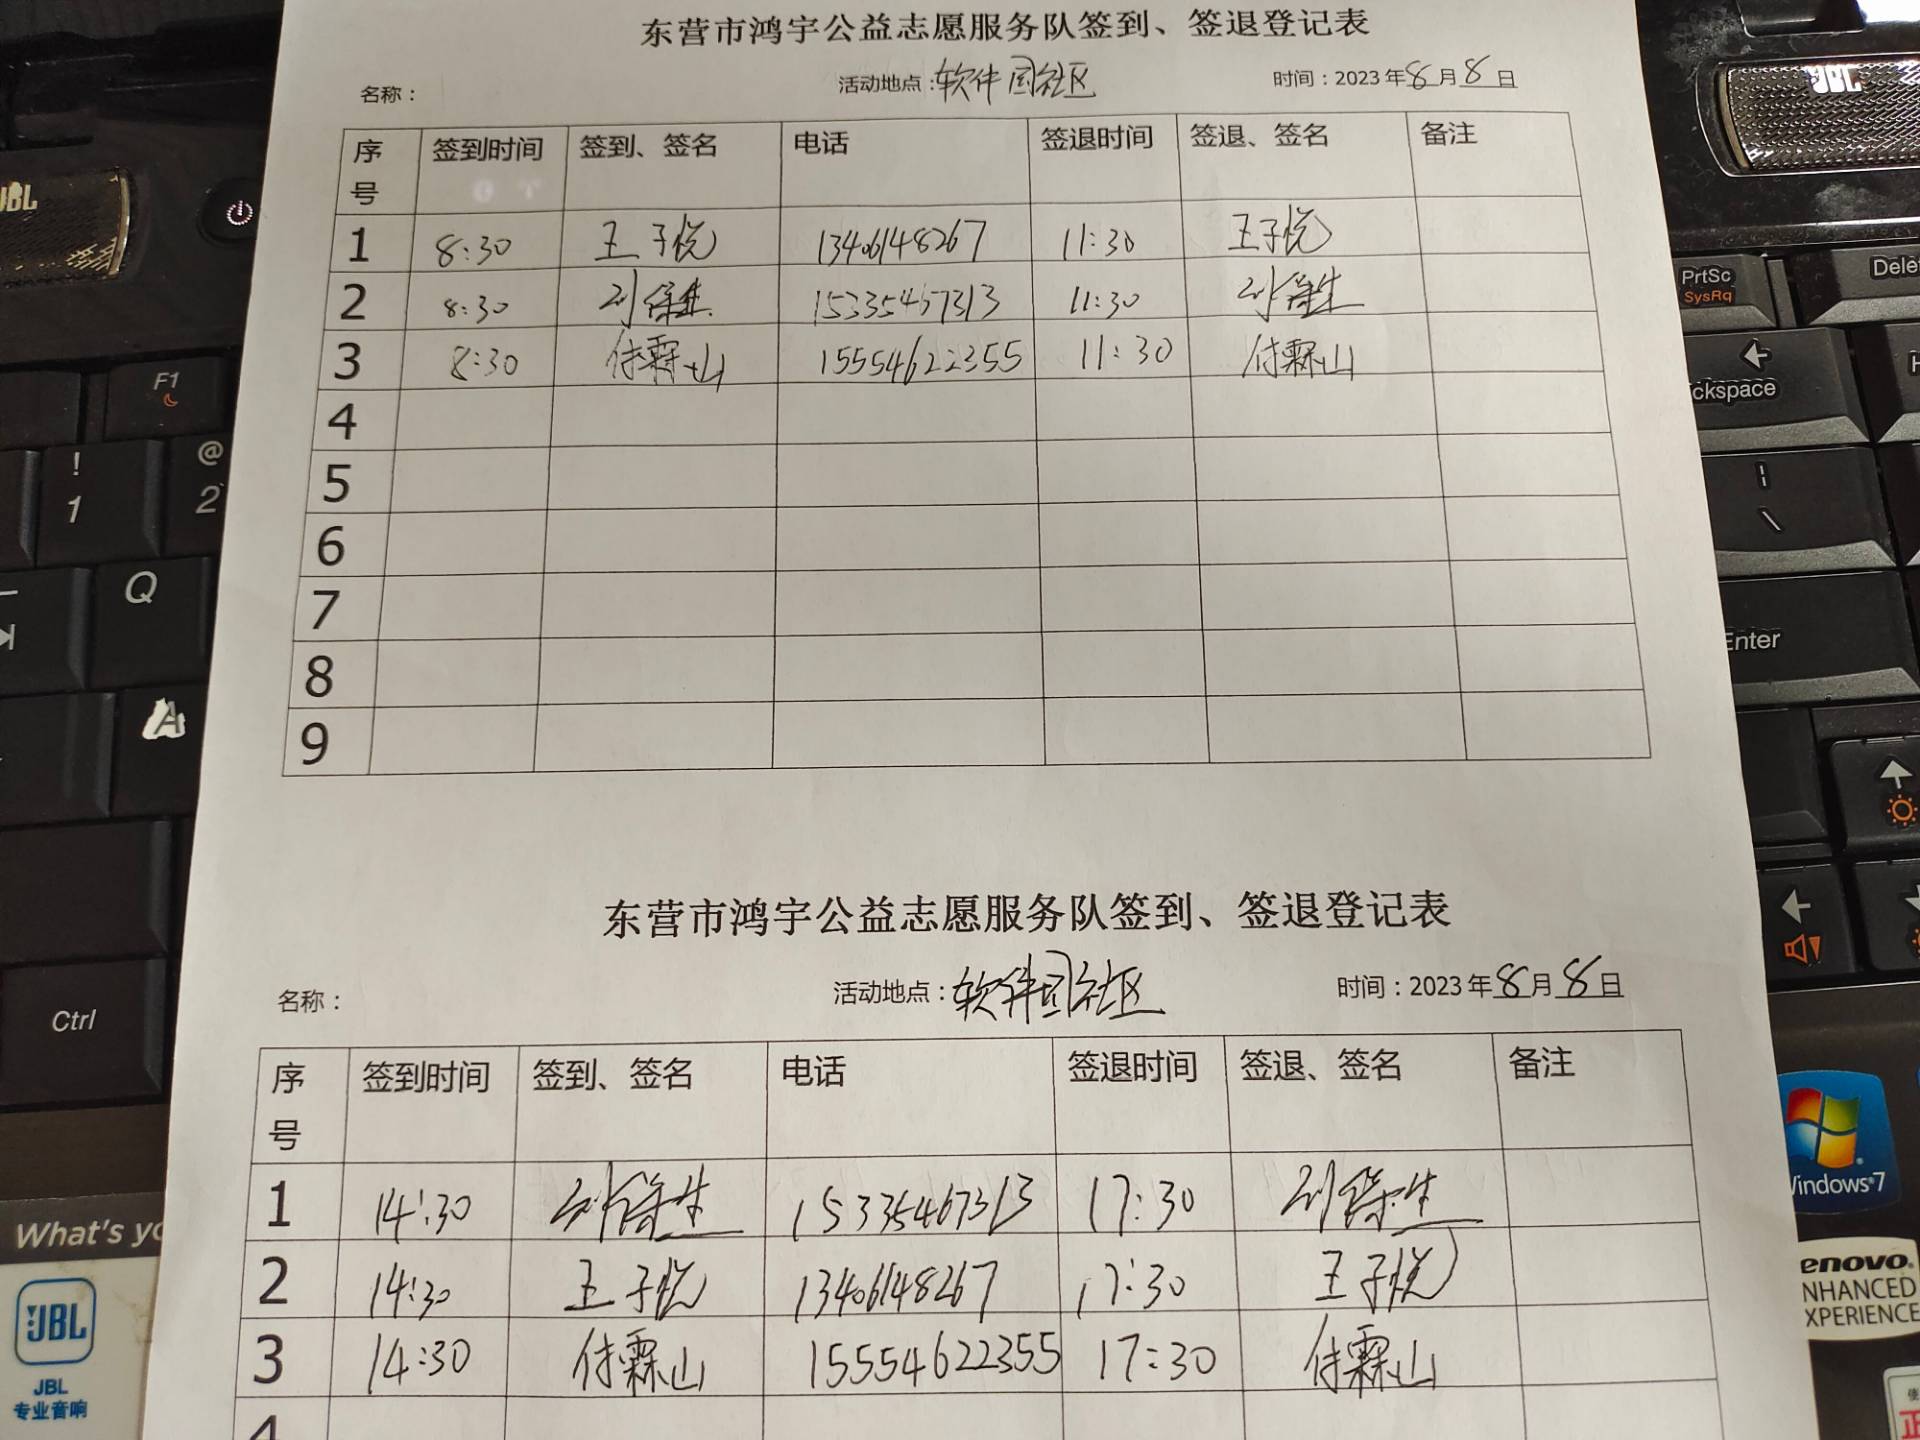 东营市鸿宇公益志愿服务队签到、签退登记表
名称： 活动地点：软件园社区 时间：2023年8月8日
序号 签到时间 签到、签名 电话 签退时间 签退、签名 备注
1 8:30 王子悦 13406148267 11:30 王子悦
2 8:30 刘保生 15335467313 11:30 刘保生
3 8:30 付霖山 15554622355 11:30 付霖山
4
5
6
7
8
9
东营市鸿宇公益志愿服务队签到、签退登记表
名称： 活动地点：软件园社区 时间：2023年8月8日
序号 签到时间 签到、签名 电话 签退时间 签退、签名 备注
1 14:30 刘保生 15335467313 17:30 刘保生
2 14:30 王子悦 13406148267 17:30 王子悦
3 14:30 付霖山 15554622355 17:30 付霖山
4
JBL
F1
! 1
@ 2
Q
A
Ctrl
What's yo
JBL
JBL
专业音响
JBL
PrtSc
SysRq
Delet
ckspace
\
Enter
Windows 7
enovo
NHANCED
XPERIENCE
正